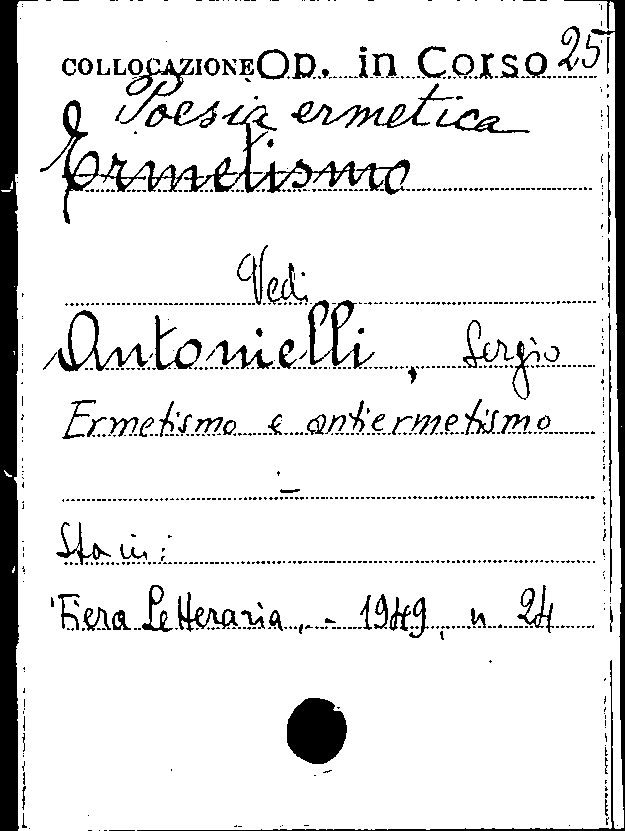 COLLOCAZIONE Op. in Corso 25
Poesia ermetica
Ermetismo
Vedi
Antonielli, Sergio
Ermetismo e antiermetismo
—
Sta in:
Fiera Letteraria, - 1949, n. 24